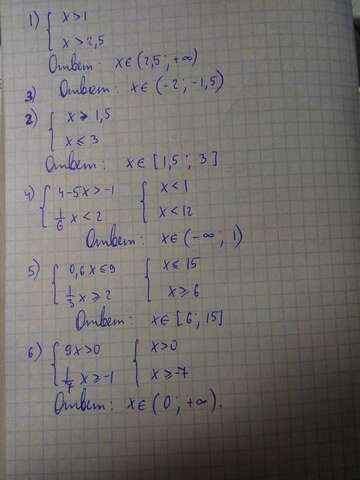 1) { x>1
x>2,5
Ответ: x∈(2,5; +∞)
3) Ответ: x∈(-2; -1,5)
2) { x⩾1,5
x⩽3
Ответ: x∈[1,5; 3]
4) { 4-5x>-1 { x<1
1/6 x<2 x<12
Ответ: x∈(-∞; 1)
5) { 0,6x⩽9 { x⩽15
1/3 x⩾2 x⩾6
Ответ: x∈[6; 15]
6) { 9x>0 { x>0
1/7 x⩾-1 x⩾-7
Ответ: x∈(0; +∞).